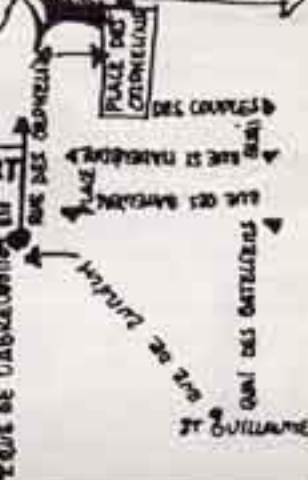 PLACE DES
ORPHELINS
RUE DES ORPHELINS
DES COUPLES
QUAI
RUE ST MADELEINE
PLACE
RUE DES BATELIERS
RUE DE ZURICH
QUAI DES BATELIERS
ST GUILLAUME